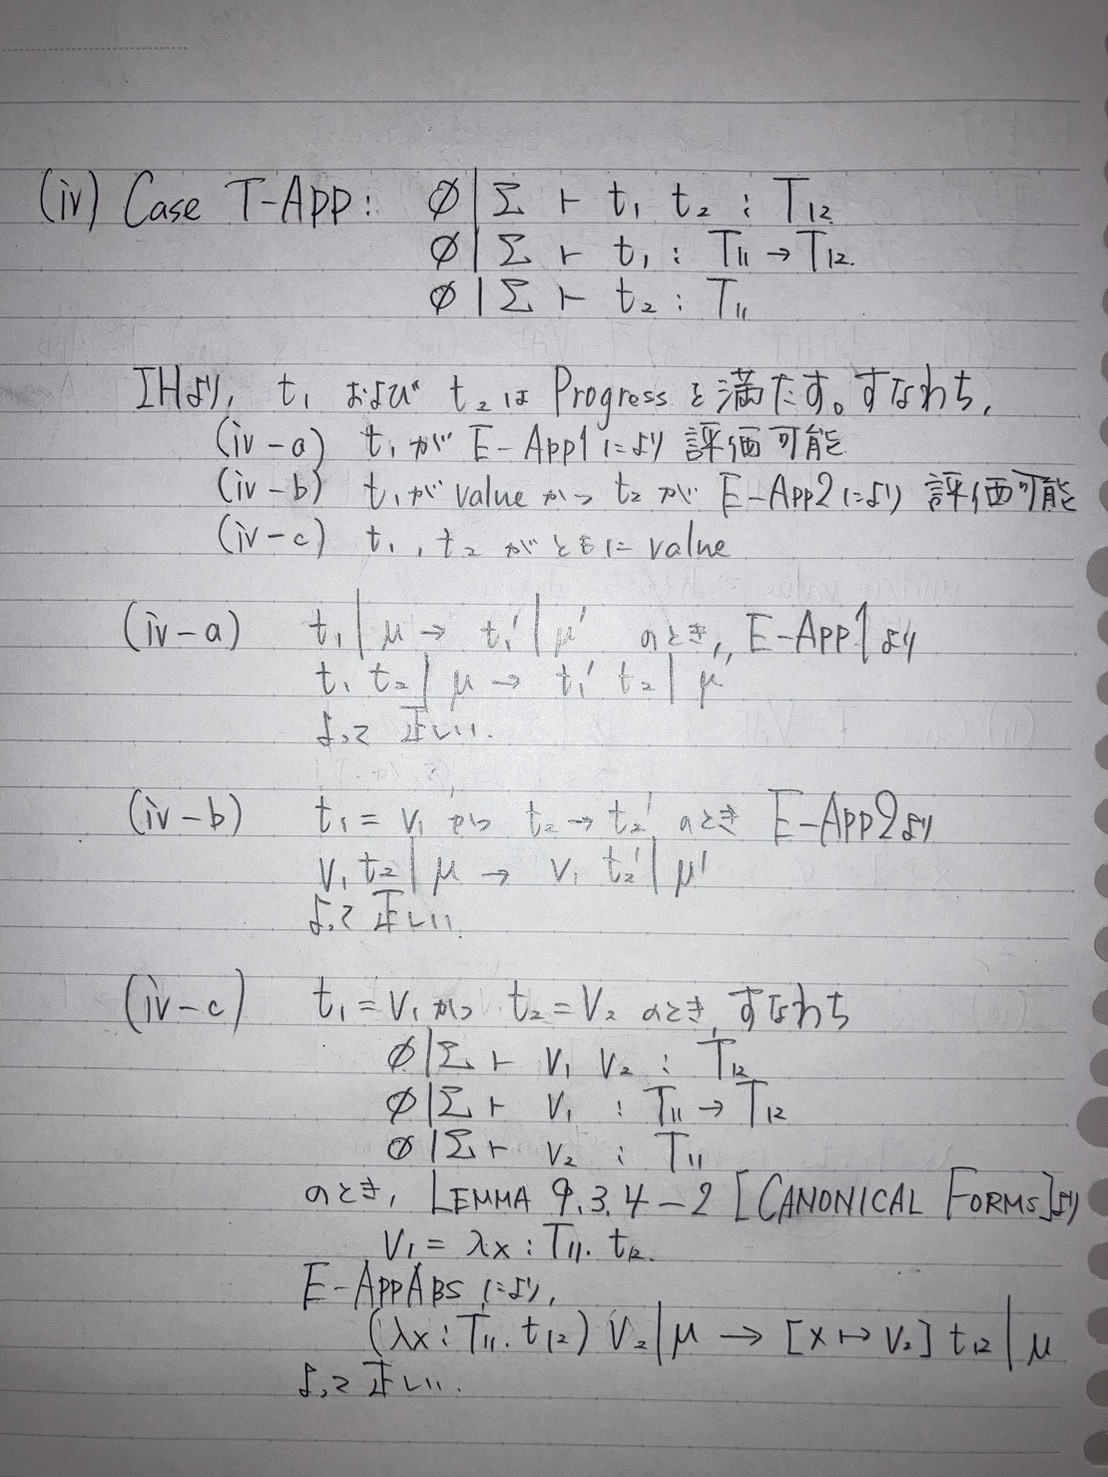 (iv) Case T-App: ∅|Σ ⊢ t₁ t₂ : T₁₂
∅|Σ ⊢ t₁ : T₁₁ → T₁₂.
∅|Σ ⊢ t₂ : T₁₁
IHより, t₁ および t₂ は Progress を満たす。すなわち,
(iv-a) t₁が E-App1により 評価可能
(iv-b) t₁が valueかつ t₂が E-App2により 評価可能
(iv-c) t₁, t₂ がともに value
(iv-a) t₁|μ → t₁'|μ' のとき,, E-App1より
t₁ t₂|μ → t₁' t₂|μ
よって 正しい.
(iv-b) t₁ = v₁ かつ t₂ → t₂' のとき E-App2より
v₁ t₂|μ → v₁ t₂'|μ'
よって 正しい.
(iv-c) t₁ = v₁ かつ t₂ = v₂ のとき, すなわち
∅|Σ ⊢ v₁ v₂ : T₁₂
∅|Σ ⊢ v₁ : T₁₁ → T₁₂
∅|Σ ⊢ v₂ : T₁₁
のとき, LEMMA 9.3.4-2 [CANONICAL FORMS]より
v₁ = λx : T₁₁. t₁₂.
E-AppABS により,
(λx : T₁₁. t₁₂) v₂|μ → [x ↦ v₂] t₁₂|μ
よって 正しい.